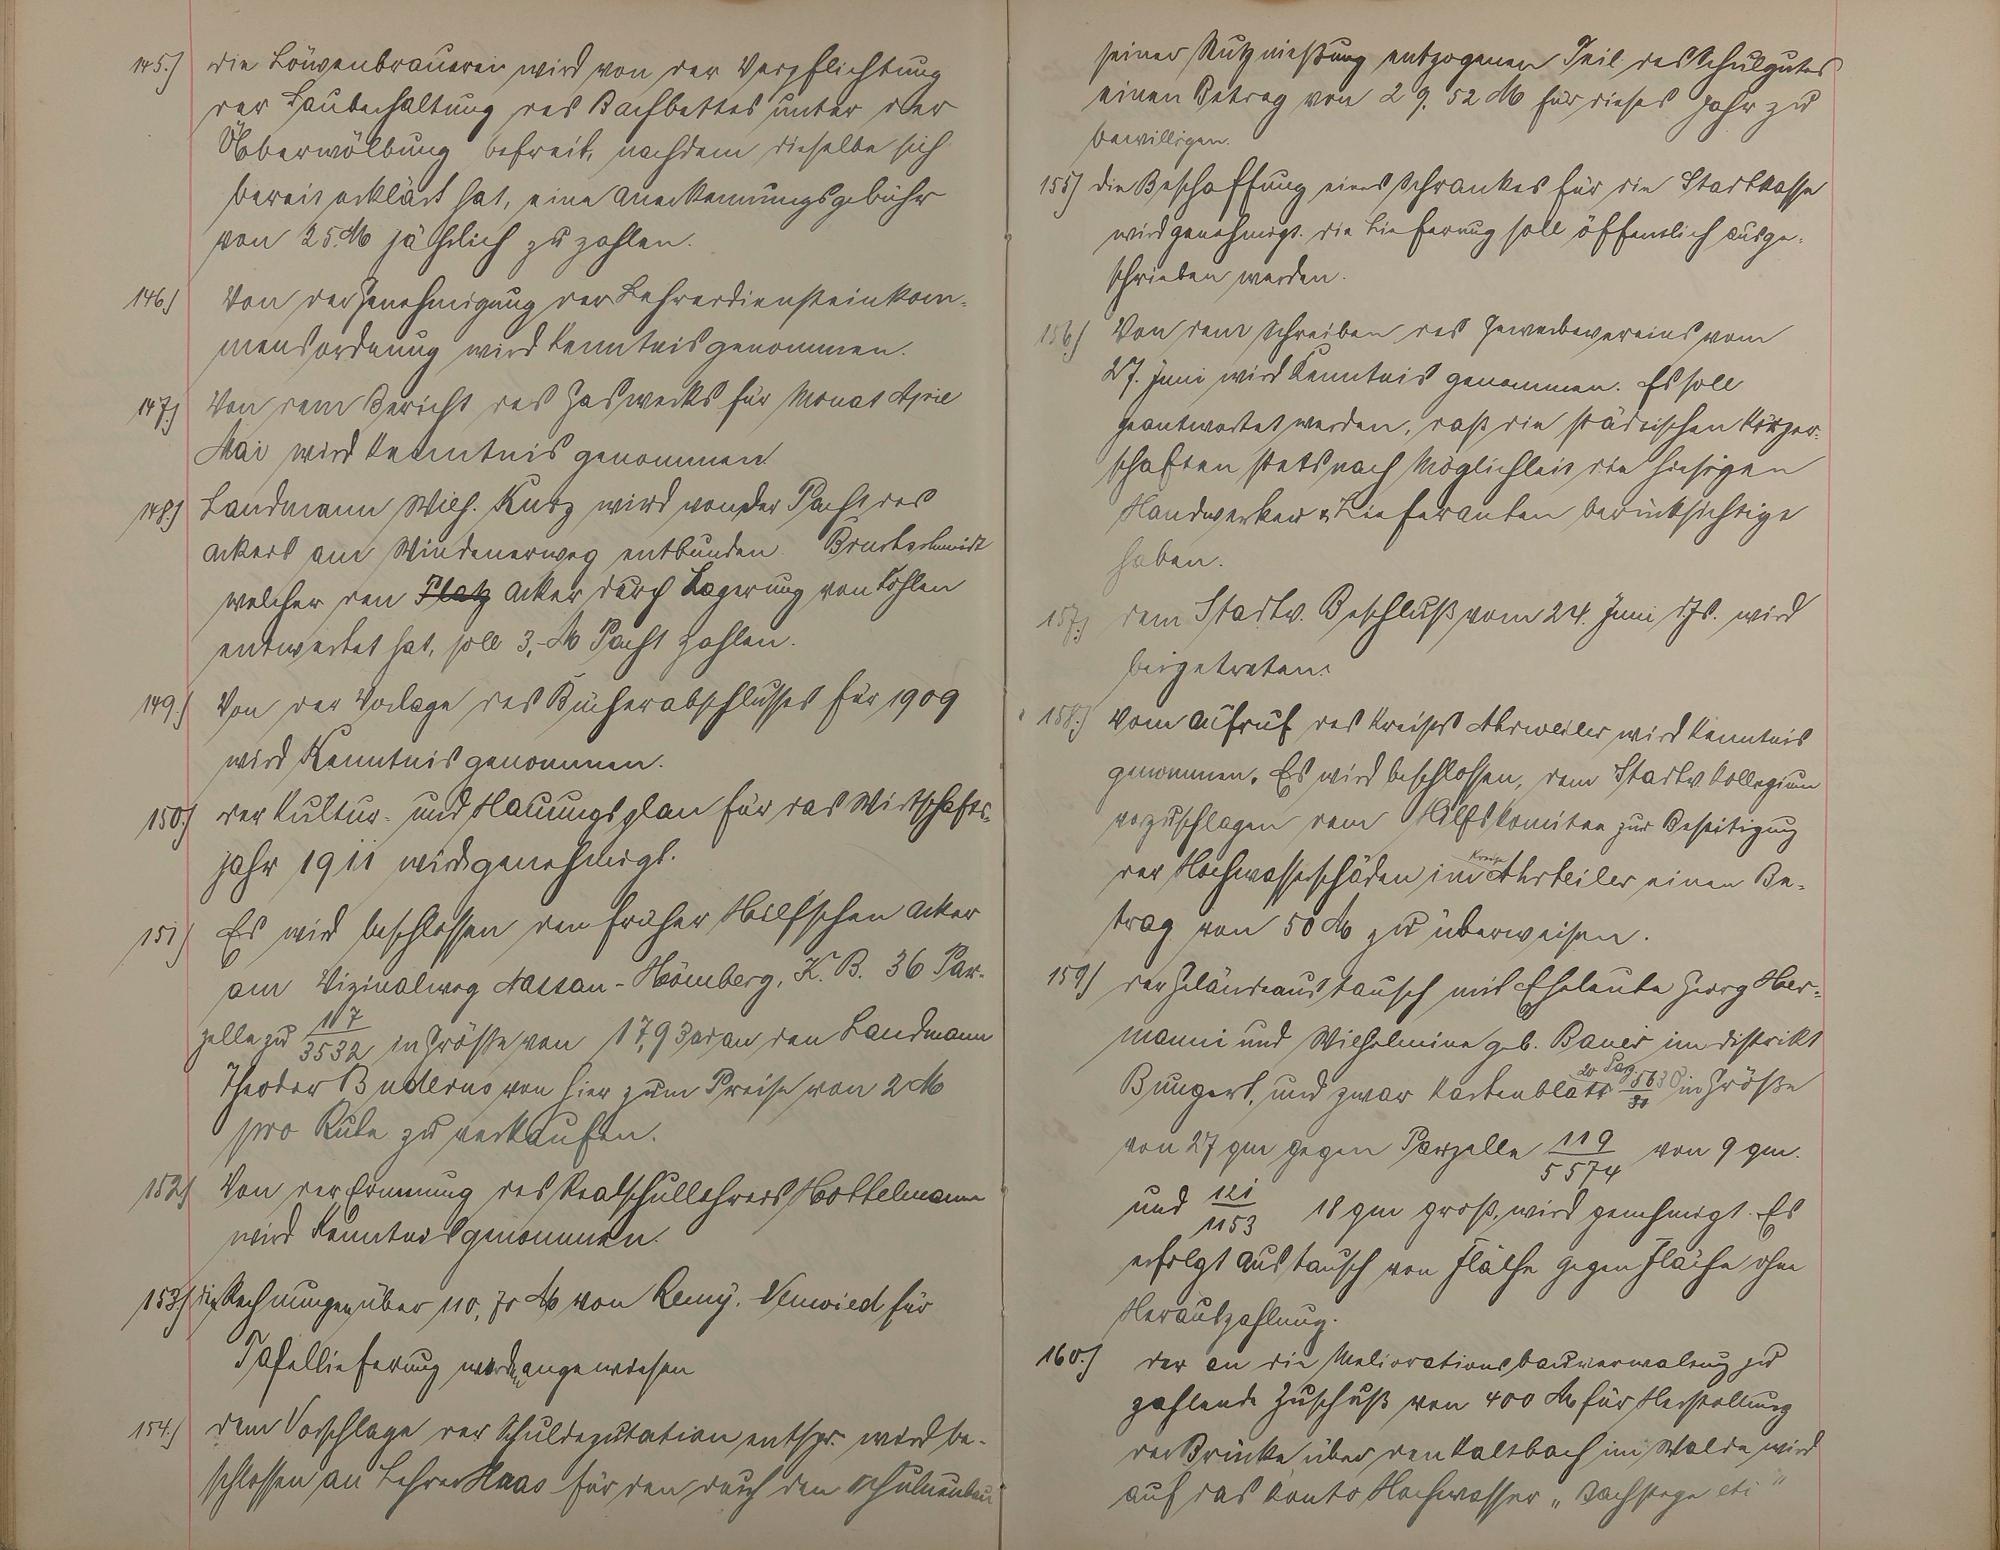 145.) die Löwenbrauerei wird von der Verpflichtung
der Sauberhaltung des Bachbettes unter der
Überwölbung befreit, nachdem dieselbe sich
bereit erklärt hat, eine Anerkennungsgebühr
von 25 M jährlich zu zahlen.
146.) Von der Genehmigung der Lehrerdiensteinkom-
mensordnung wird Kenntnis genommen.
147.) Von dem Bericht des Gaswerks für Monat April
Mai wird Kenntnis genommen
148.) Landmann Wilh. Kurz wird von der Pacht des
Ackers am Windenerweg entbunden. Bruchschmidt
welcher den Platz Acker durch Lagerung von Kohlen
entwertet hat, soll 3,- M Pacht zahlen.
149.) Von der Vorlage des Bücherabschlusses für 1909
wird Kenntnis genommen.
150.) der Kultur- und Hauungsplan für das Wirtschafts-
jahr 1911 wird genehmigt.
151.) Es wird beschlossen den früher Hilf'schen Acker
am Vizinalweg Nassau-Hömberg, K. B. 36 Par-
zelle zu 117/3532 in Größe von 17,93 ar an den Landmann
Theodor Buderus von hier zum Preise von 2 M
pro Rute zu verkaufen.
152.) Von der Ernennung des Realschullehrers Hottelmann
wird Kenntnis genommen.
153.) die Rechnungen über 110,70 M von Remy, Neuwied für
Tafellieferung werden angewiesen
154.) dem Vorschlage der Schuldeputation entspr. wird be-
schlossen an Lehrer Haas für den durch den Schulneubau
seiner Nutznießung entzogenen Teil des Schulgutes
einen Betrag von 29,52 M für dieses Jahr zu
bewilligen.
155.) die Beschaffung eines Schrankes für die Stadtkasse
wird genehmigt. die Lieferung soll öffentlich ausge-
schrieben werden.
156.) Von dem Schreiben des Gewerbevereins vom
27. Juni wird Kenntnis genommen. Es soll
geantwortet werden, daß die städtischen Körper-
schaften stets nach Möglichkeit die hiesigen
Handwerker & Lieferanten berücksichtigt
haben.
157.) dem Stadtv. Beschluß vom 24. Juni d. Js. wird
beigetreten.
158.) Vom Aufruf des Kreises Ahrweiler wird Kenntnis
genommen. Es wird beschlossen, dem Stadtv. Kollegium
vorzuschlagen dem Hilfskomitee zur Beseitigung
der Hochwasserschäden im Kreise Ahrweiler einen Be-
trag von 50 M zu überweisen.
159.) der Geländeaustausch mit Eheleute Georg Her-
manni und Wilhelmine geb. Bauer im Distrikt
Bungert, und zwar Kartenblatt 20 Parz. 5630/80 in Größe
von 27 qm gegen Parzelle 119/5574 von 9 qm.
und 121/1153 18 qm groß, wird genehmigt. Es
erfolgt Austausch von Fläche gegen Fläche ohne
Herauszahlung.
160.) der an die Meliorationsbauverwaltung zu
zahlende Zuschuß von 400 M für Herstellung
der Brücke über den Kaltbach im Walde wird
auf das Konto Hochwasser „